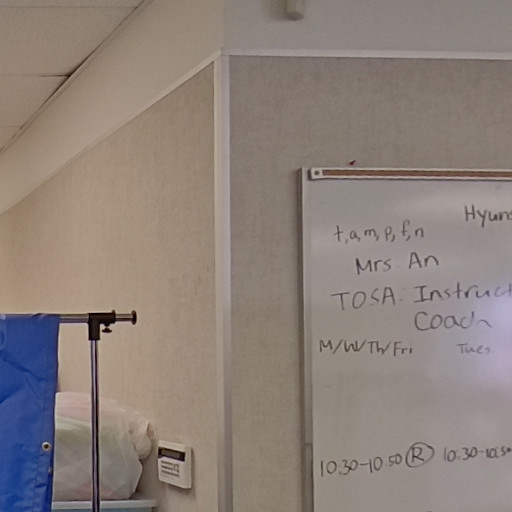 Hyun
t, a, m, p, f, n
Mrs An
TOSA: Instruct
Coach
M/W/Th/Fri Tues.
10:30-10:50 Ⓡ 10:30-10:5